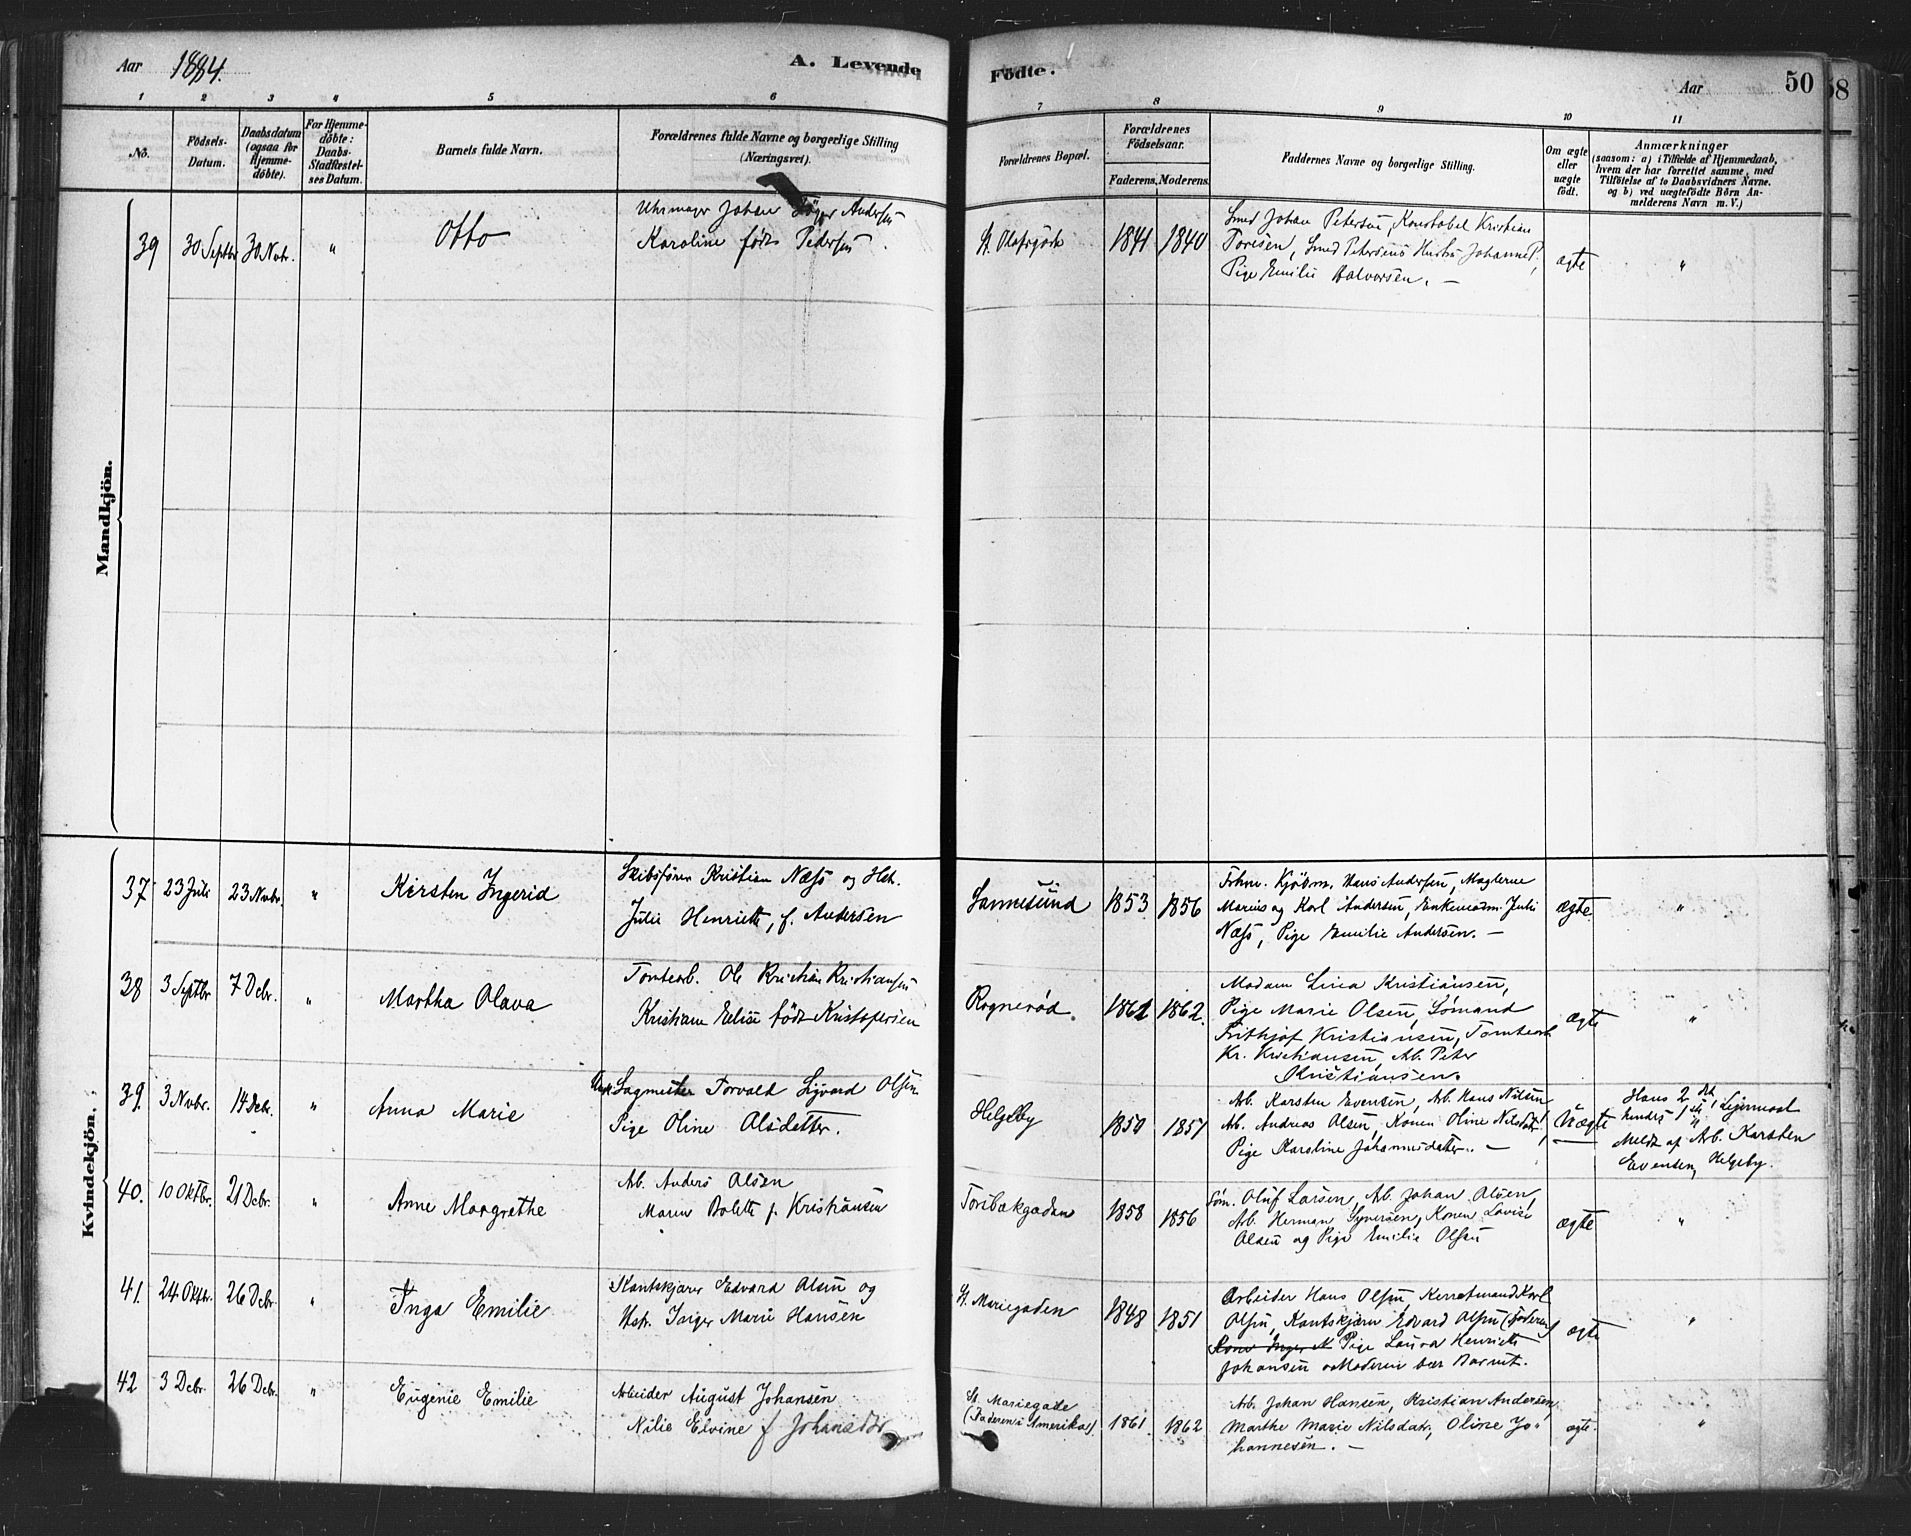 Aar 1884. A. Levende Födte. Aar 50
1 2 3 4 5 6 7 8 9 10 11
Nô.
Födsels-Datum.
Daabsdatum (ogsaa for Hjemme-döbte).
For Hjemme-döbte: Daabs-Stadfæstel-ses Datum.
Barnets fulde Navn.
Forældrenes fulde Navne og borgerlige Stilling (Næringsvei).
Forældrenes Bopæl.
Forældrenes Födselsaar.
Faderens. Moderens.
Faddernes Navne og borgerlige Stilling.
Om ægte eller uægte födt.
Anmærkninger
(saasom: a) i Tilfælde af Hjemmedaab, hvem der har forrettet samme, med Tilföielse af to Daabsvidners Navne. og b) ved uægtefödte Börn An-melderens Navn m. V.)
Mandkjön.
39 30 Septbr 30 Nvbr. " Otto
Uhrmager Johan Andersen
Karoline født Pedersen
St. Olafsgade 1841 1840
Smed Johan Petersen, Konstabel Kristian
Torisen, Smed Petersens Hustru Johanne P.,
Pige Emilie Halvorsen. —
ægte "
Kvindekjön.
37 23 Juli 23 Nvbr. " Kirsten Ingerid
Skibsfører Kristian Næss og Hst.
Julie Henriette, f. Andersen
Sannesund 1853 1856
Fhv. Kjøbm. Hans Andersen, Maglerne
Marius og Karl Andersen, Enkemadm. Juli
Næss, Pige Emilie Andersen. —
ægte "
38 3 Septbr 7 Debr. " Martha Olava
Tomtearb. Ole Kristian Kristiansen
Kristiane Elise født Kristofersen
Rognerød. 1861 1862.
Madam Lina Kristiansen,
Pige Marie Olsen, Sømand
Frithjof Kristiansen, Tomtearb.
Kr. Kristiansen, Ab. Peter
Kristiansen.
ægte "
39. 3 Nvbr. 14 Debr. " Anna Marie
Ungk. Sagmester Torvald Sigvard Olsen
Pige Oline Olsdatter.
Helgeby 1850 1851
Ab. Karsten Evensen, Ab. Hans Nilsen
Ab. Andreas Olsen, Konen Oline Nilsdatr,
Pige Karoline Johannesdatter. —
Uægte
Hans 2 det,
hendes 1ste Leiermaal
Meldt af Ab. Karsten
Evensen, Helgeby.
40. 10 Oktbr. 21 Debr. " Anne Margrethe
Ab. Anders Olsen
Maren Bolette f. Kristiansen
Torsbækgaden 1858 1856
Søm. Oluf Larsen, Ab. Johan Olsen,
Ab. Herman Syversen, Konen Lovise
Olsen og Pige Emilie Olsen
ægte "
41. 24 Oktbr. 26 Debr. " Inga Emilie
Kontskjærer Edvard Olsen og
Hstr. Inger Marie Hansen
St. Mariegaden 1848 1851
Arbeider Hans Olsen, Karl
Olsen, Kontskjærer Edvard Olsen (Faderen)
Kone Inger M Pige Laura Henriette
Johansen Moderen bar Barnet.
ægte "
42 3 Debr. 26 Debr. " Eugenie Emilie
Arbeider August Johansen
Nilie Elvine f Johansdtr
St. Mariegade
(Faderen i Amerika). 1861 1862
Ab. Johan Hansen, Kristian Andersen,
Marthe Marie Nilsdatr, Oline Jo-
hannesen. —
ægte. "
58